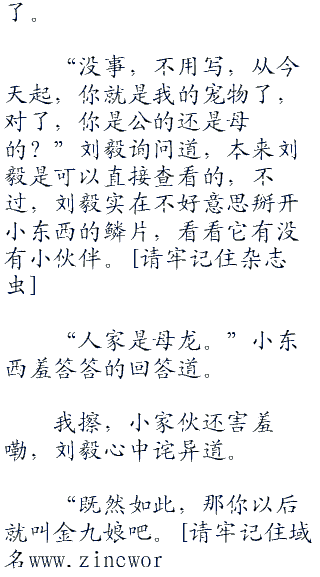 了。
“没事，不用写，从今
天起，你就是我的宠物了，
对了，你是公的还是母
的？”刘毅询问道，本来刘
毅是可以直接查看的，不
过，刘毅实在不好意思掰开
小东西的鳞片，看看它有没
有小伙伴。[请牢记住杂志
虫]
“人家是母龙。”小东
西羞答答的回答道。
我擦，小家伙还害羞
嘞，刘毅心中诧异道。
“既然如此，那你以后
就叫金九娘吧。[请牢记住域
名www.zincwor